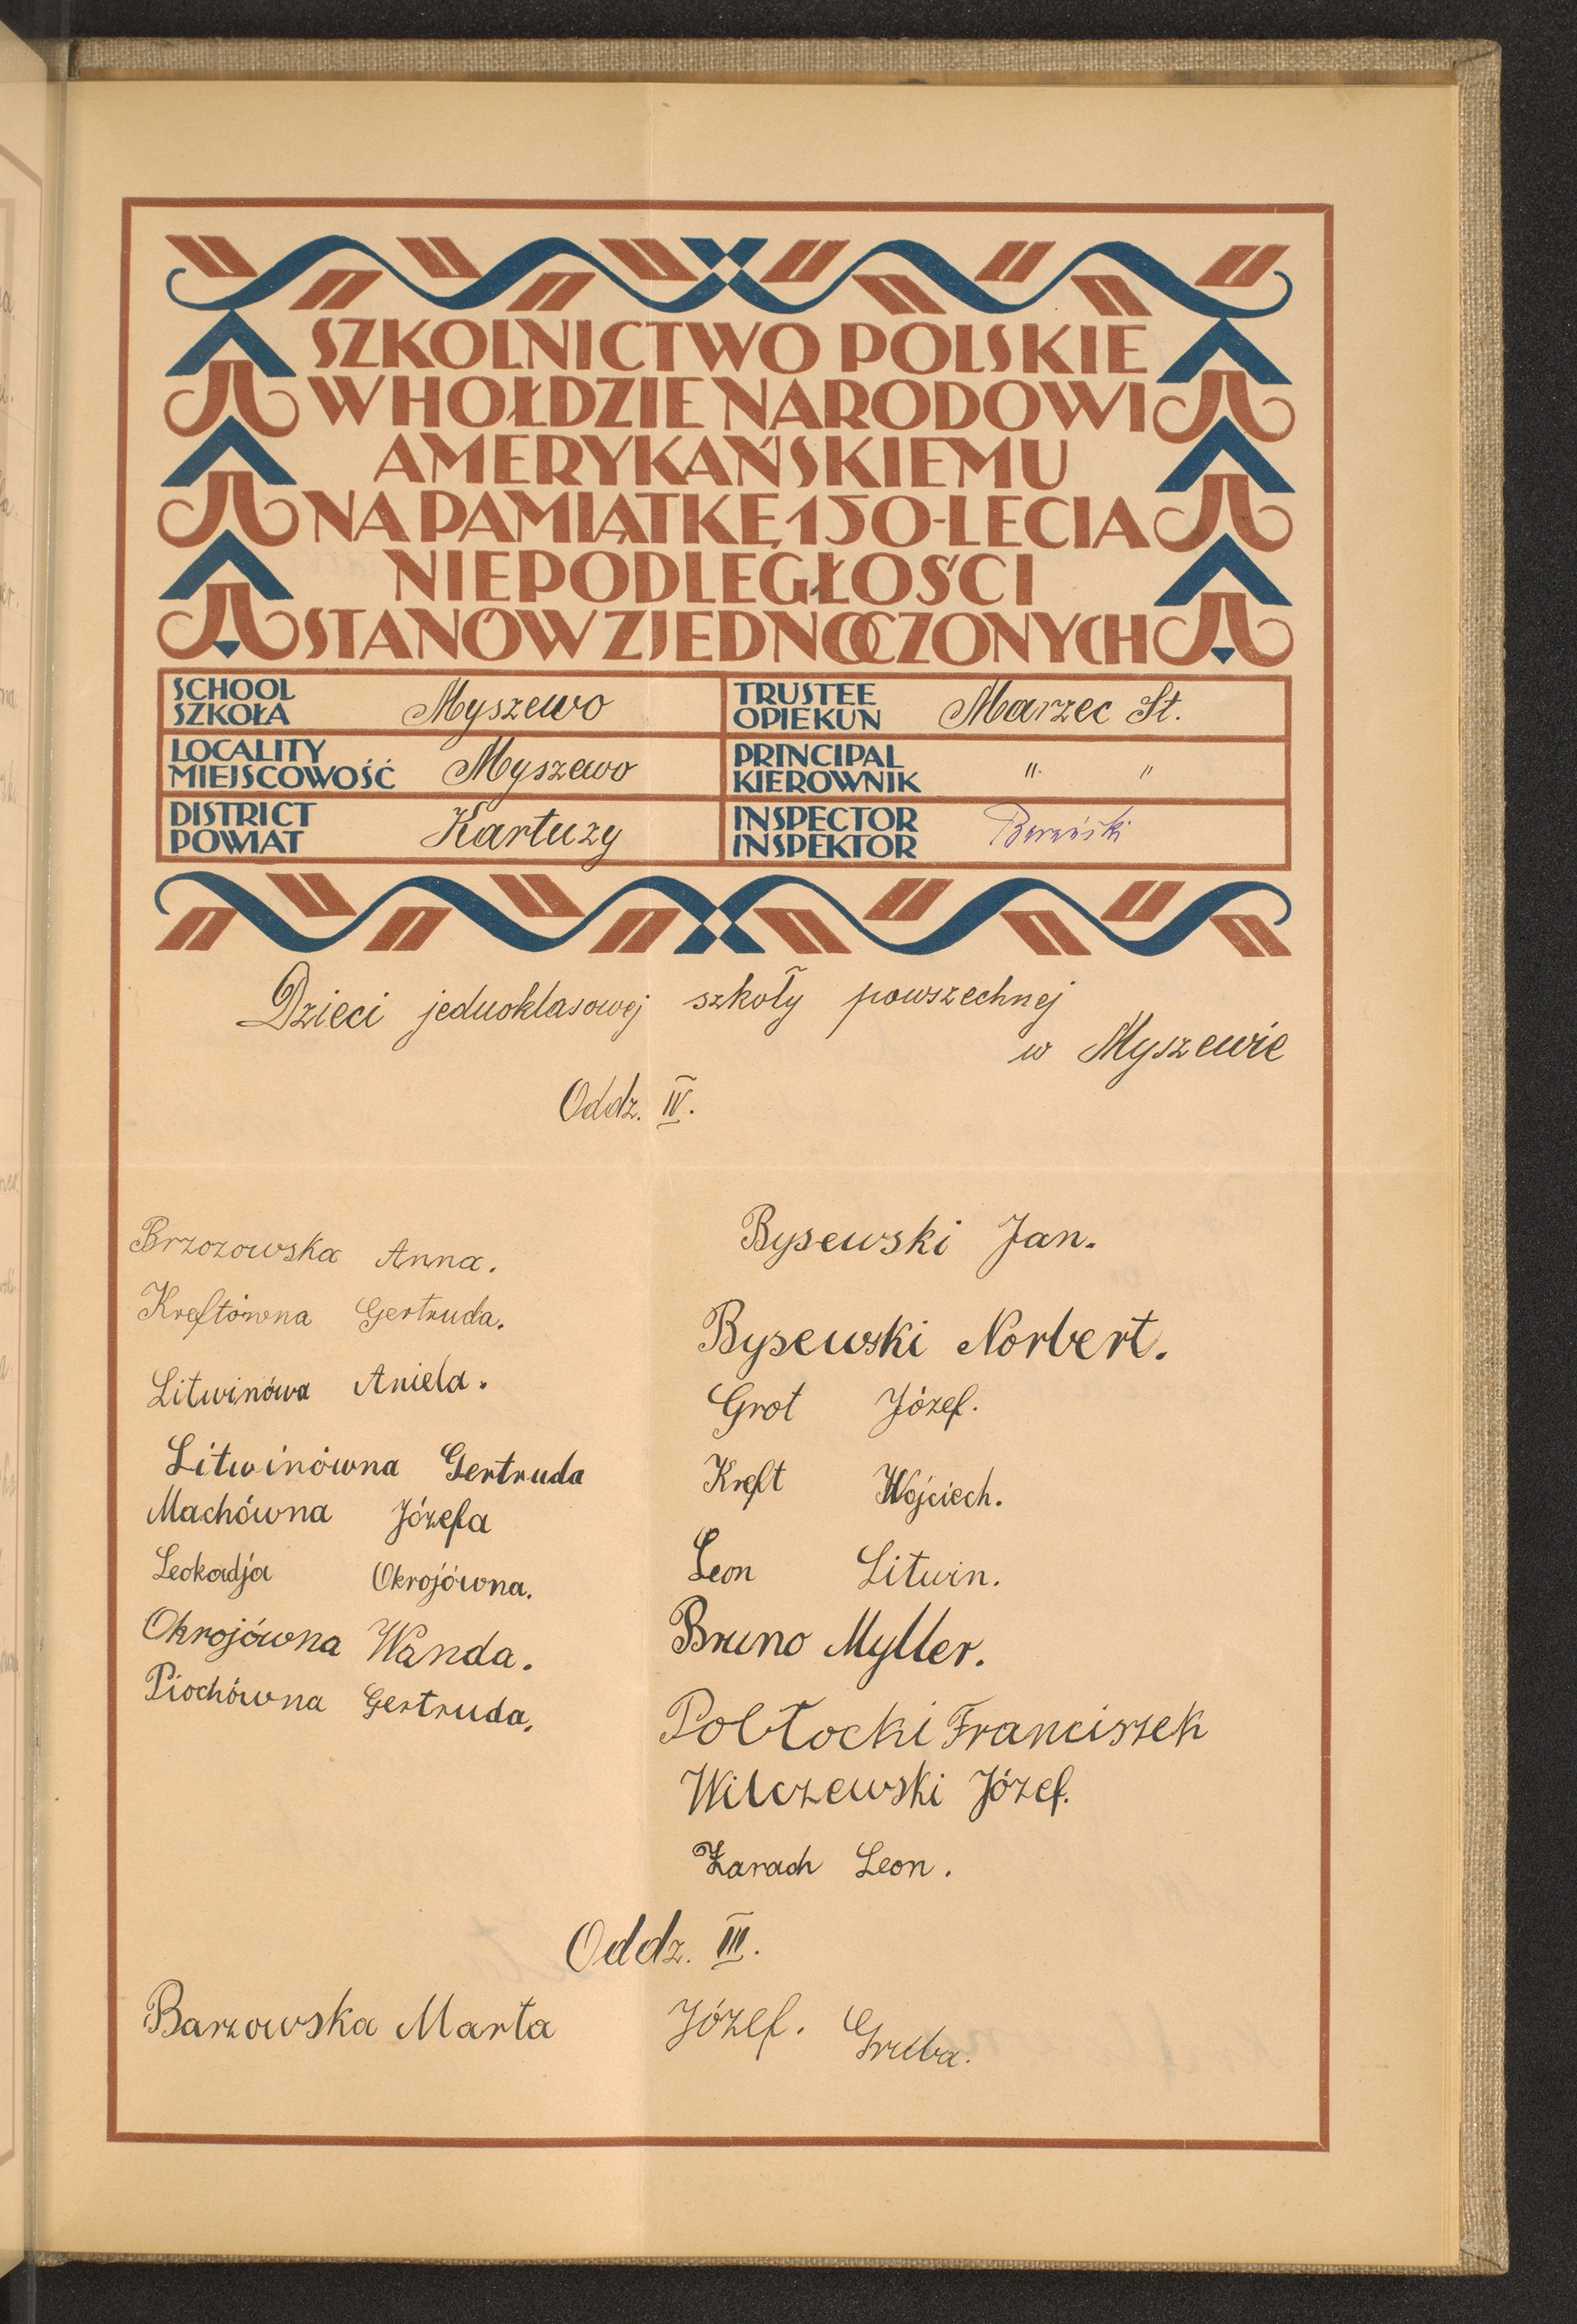 SZKOLNICTWO POLSKIE
W HOŁDZIE NARODOWI
AMERYKAŃSKIEMU
NA PAMIĄTKĘ 150-LECIA
NIEPODLEGŁOŚCI
STANÓW ZJEDNOCZONYCH
SCHOOL
SZKOŁA Myszewo
TRUSTEE
OPIEKUN Marzec St.
LOCALITY
MIEJSCOWOŚĆ Myszewo
PRINCIPAL
KIEROWNIK " "
DISTRICT
POWIAT Kartuzy
INSPECTOR
INSPEKTOR
Dzieci jednoklasowej szkoły powszechnej
w Myszewie
Oddz. IV.
Brzozowska Anna.
Kreftówna Gertruda.
Litwinówa Aniela.
Litwinówna Gertruda
Machówna Józefa
Leokadja Okrojówna.
Okrojówna Wanda.
Piochówna Gertruda,
Bysewski Jan.
Bysewski Norbert.
Grot Józef.
Kreft Wojciech.
Leon Litwin.
Bruno Myller.
Pobłocki Franciszek
Wilczewski Józef.
Żarach Leon.
Oddz. III.
Barzowska Marta
Józef. Gruba.